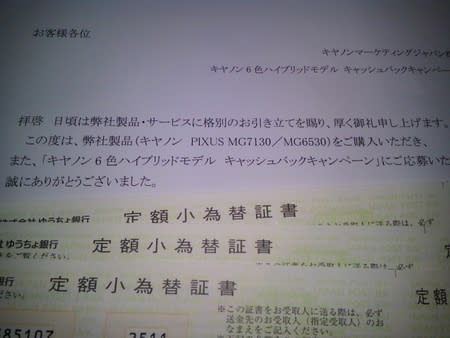 お客様各位
キヤノンマーケティングジャパン株
キヤノン6色ハイブリッドモデル キャッシュバックキャンペー
拝啓 日頃は弊社製品・サービスに格別のお引き立てを賜り、厚く御礼申し上げます。
この度は、弊社製品(キヤノン PIXUS MG7130/MG6530)をご購入いただき、
また、「キヤノン6色ハイブリッドモデル キャッシュバックキャンペーン」にご応募いた
誠にありがとうございました。
株式会社 ゆうちょ銀行
定額小為替証書
お受取人に送る際は、必ず
会社 ゆうちょ銀行
定額小為替証書
定額
ゆうちょ銀行
ださい。
定額小為替証書
定
※この証書をお受取人に送る際は、必ず
送金先のお受取人(指定受取人)のお
なまえをご記入ください。